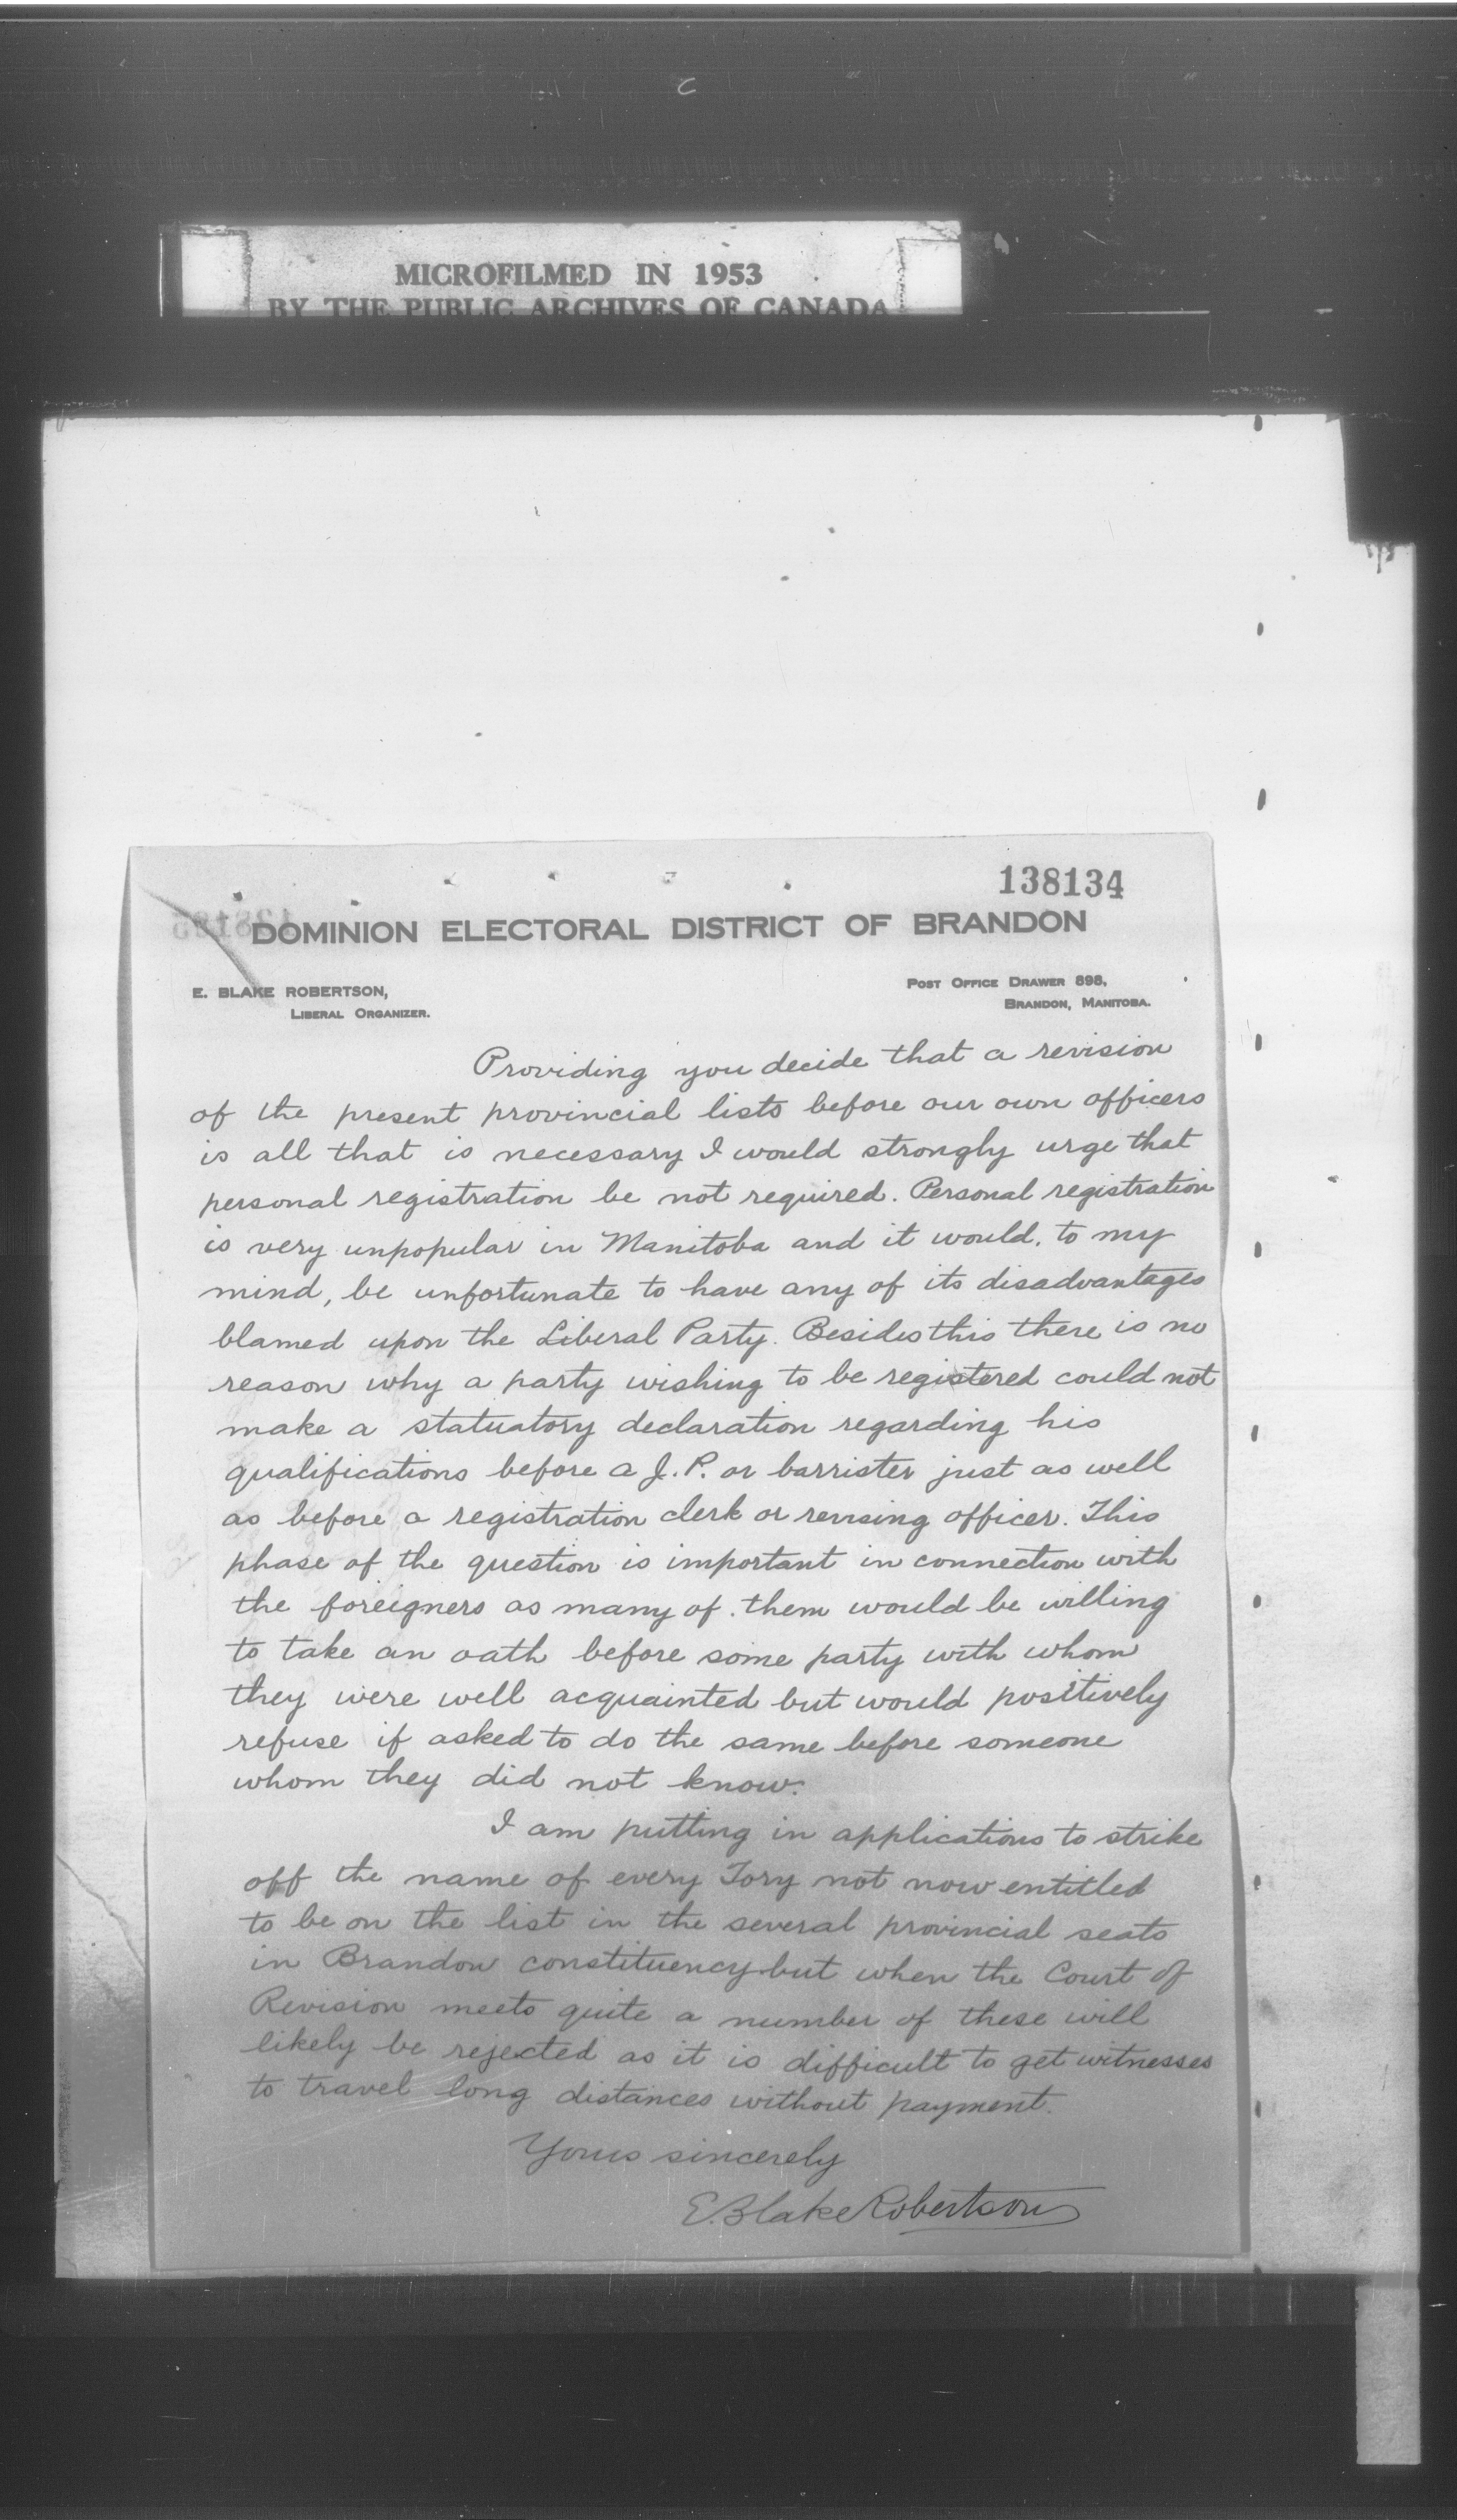 MICROFILMED IN 1953
BY THE PUBLIC ARCHIVES OF CANADA
138134
DOMINION ELECTORAL DISTRICT OF BRANDON
E. BLAKE ROBERTSON,
LIBERAL ORGANIZER.
POST OFFICE DRAWER 898,
BRANDON, MANITOBA.
Providing you decide that a revision
of the present provincial lists before our own officers
is all that is necessary I would strongly urge that
personal registration be not required. Personal registration
is very unpopular in Manitoba and it would, to my
mind, be unfortunate to have any of its disadvantages
blamed upon the Liberal Party. Besides this there is no
reason why a party wishing to be registered could not
make a statuatory declaration regarding his
qualifications before a J.P. or barrister just as well
as before a registration clerk or revising officer. This
phase of the question is important in connection with
the foreigners as many of them would be willing
to take an oath before some party with whom
they were well acquainted but would positively
refuse if asked to do the same before someone
whom they did not know.
I am putting in applications to strike
off the name of every Tory not now entitled
to be on the list in the several provincial seats
in Brandon constituency but when the Court of
Revision meets quite a number of these will
likely be rejected as it is difficult to get witnesses
to travel long distances without payment.
Yours sincerely
E. Blake Robertson